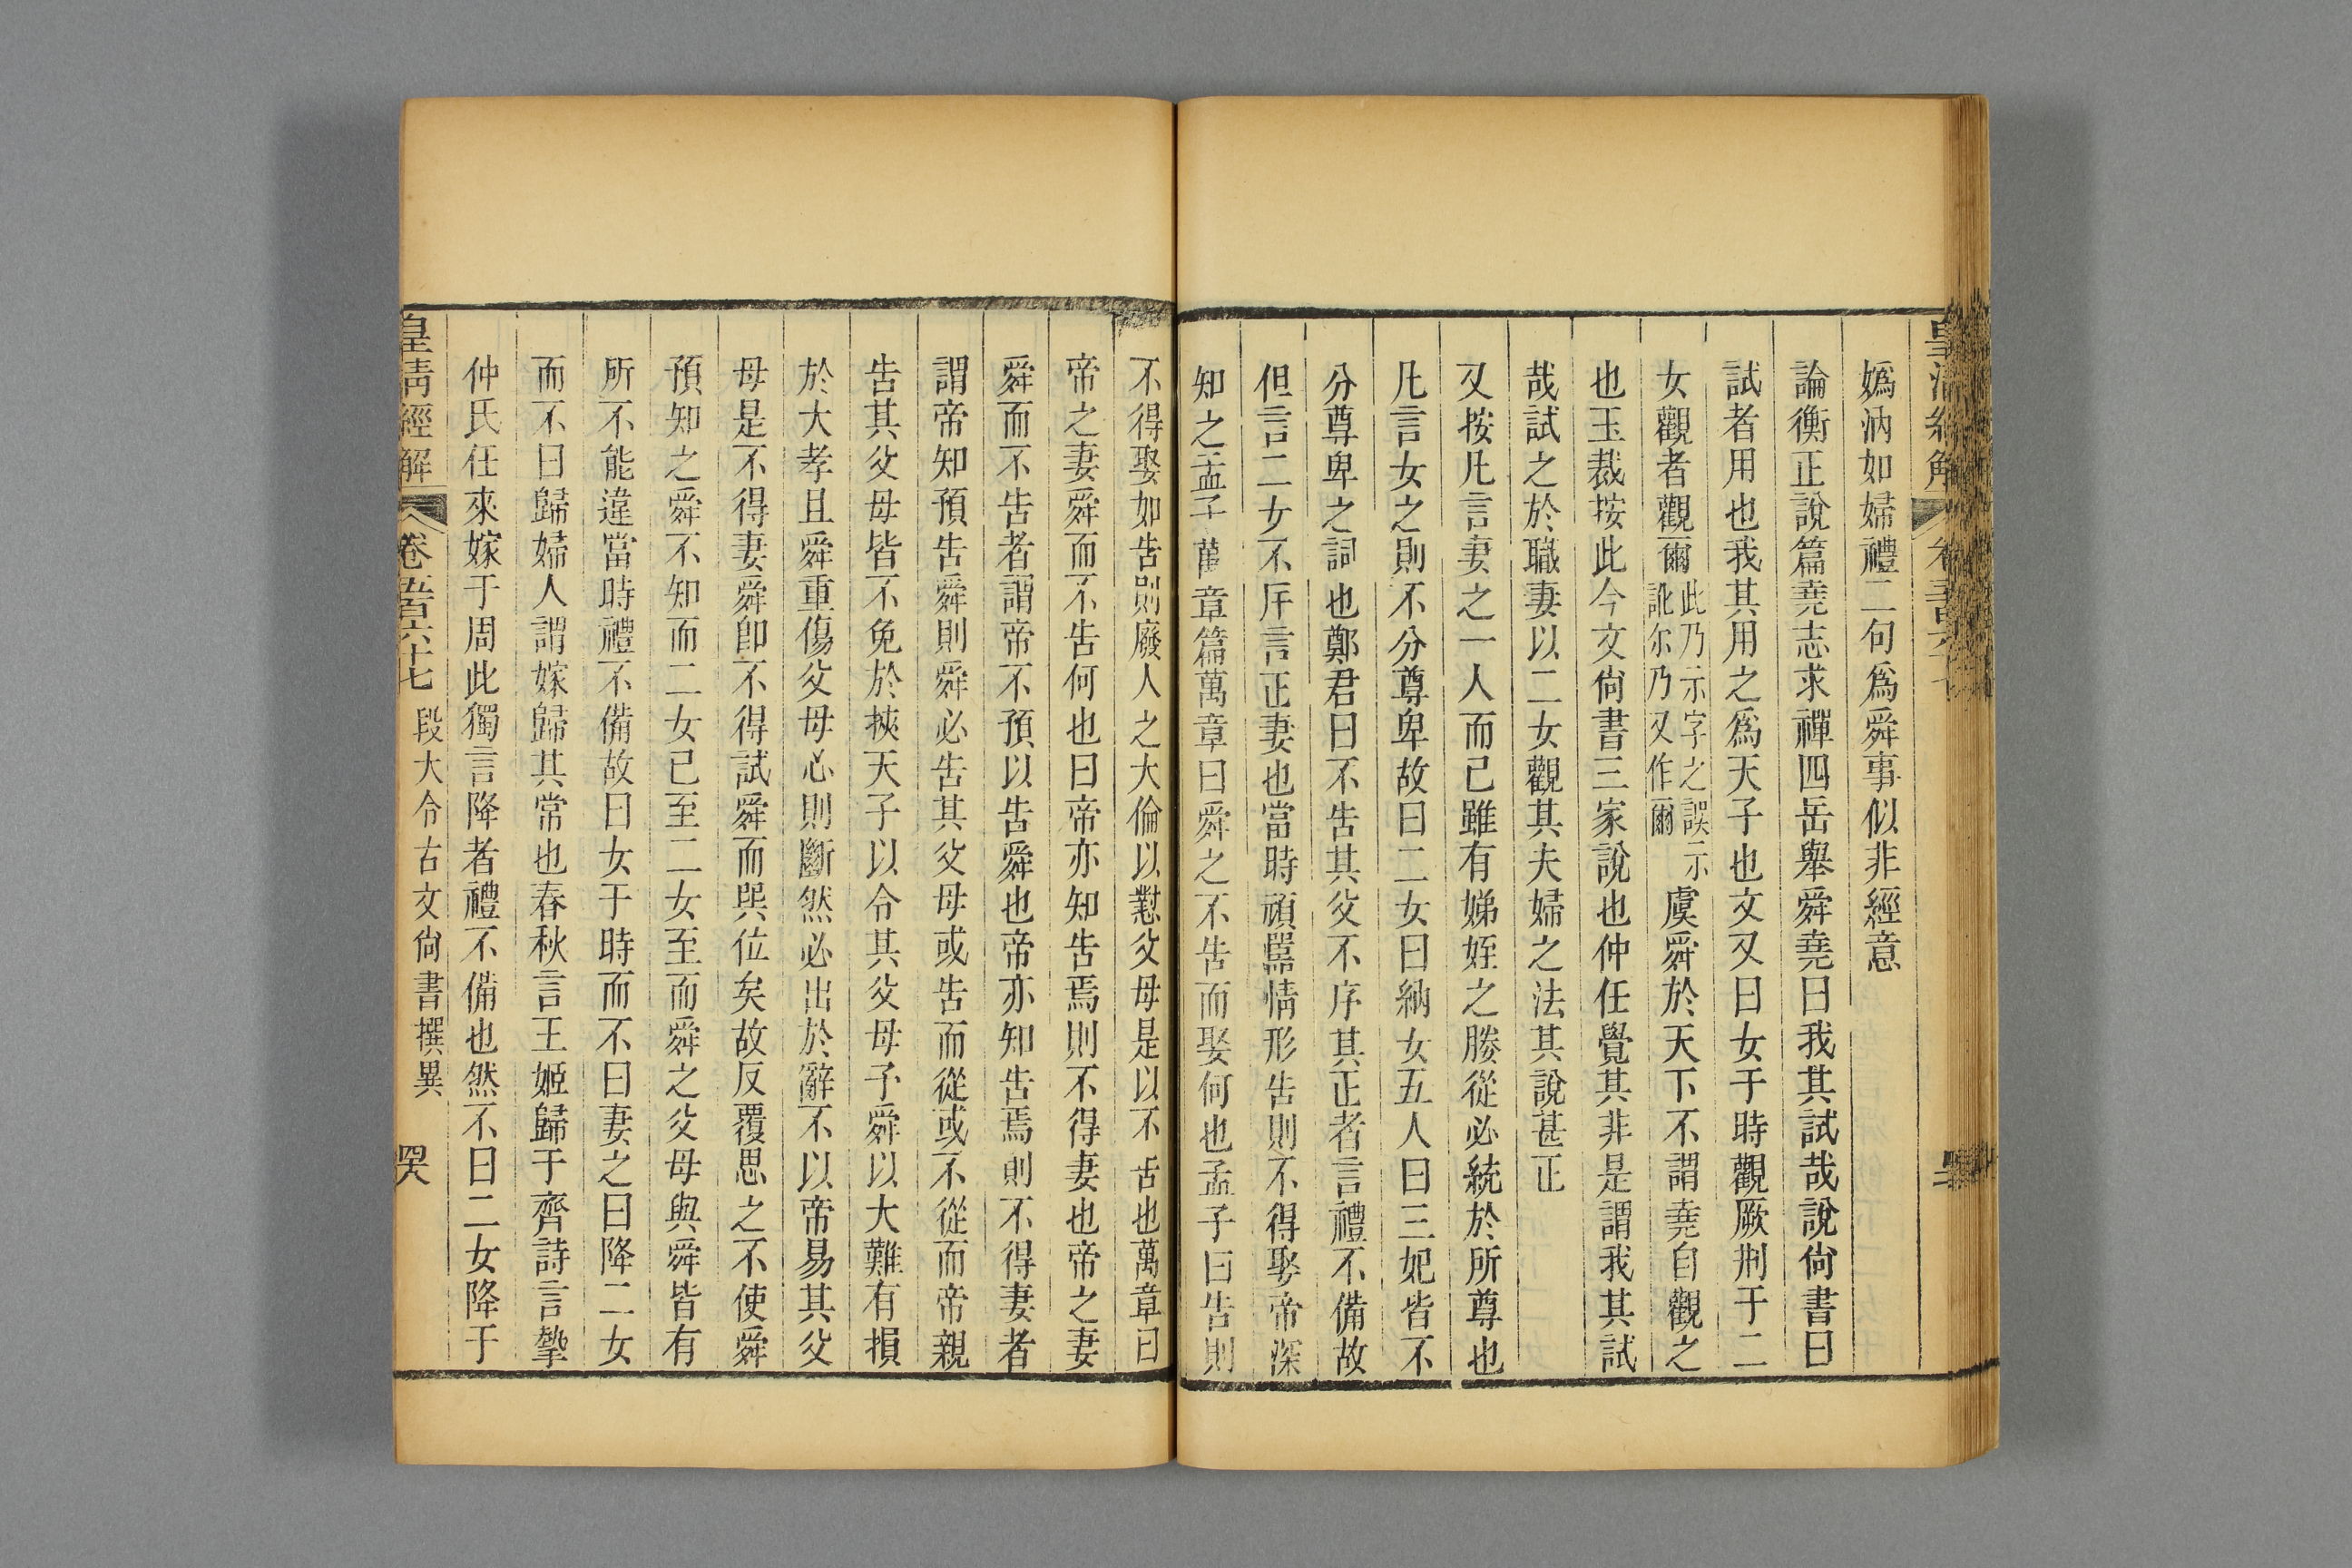 嬀汭如婦禮二句爲舜事似非經意
論衡正說篇堯志求禪四岳舉舜堯曰我其試哉說尙書曰
試者用也我其用之爲天子也文又曰女于時觀厥刑于二
女觀者觀爾此乃示字之誤示訛尔乃又作爾虞舜於天下不謂堯自觀之
也玉裁按此今文尙書三家說也仲任覺其非是謂我其試
哉試之於職妻以二女觀其夫婦之法其說甚正
又按凡言妻之一人而已雖有娣姪之媵從必統於所尊也
凡言女之則不分尊卑故曰二女曰納女五人曰三妃皆不
分尊卑之詞也鄭君曰不告其父不序其正者言禮不備故
但言二女不斥言正妻也當時頑嚚情形告則不得娶帝深
知之孟子萬章篇萬章曰舜之不告而娶何也孟子曰告則
不得娶如告則廢人之大倫以懟父母是以不告也萬章曰
帝之妻舜而不告何也曰帝亦知告焉則不得妻也帝之妻
舜而不告者謂帝不預以告舜也帝亦知告焉則不得妻者
謂帝知預告舜則舜必告其父母或告而從或不從而帝親
告其父母皆不免於挾天子以令其父母予舜以大難有損
於大孝且舜重傷父母心則斷然必出於辭不以帝易其父
母是不得妻舜卽不得試舜而巽位矣故反覆思之不使舜
預知之舜不知而二女已至二女至而舜之父母與舜皆有
所不能違當時禮不備故曰女于時而不曰妻之曰降二女
而不曰歸婦人謂嫁歸其常也春秋言王姬歸于齊詩言摯
仲氏任來嫁于周此獨言降者禮不備也然不曰二女降于
皇清經解 卷五百六十七 段大令古文尙書撰異 四六